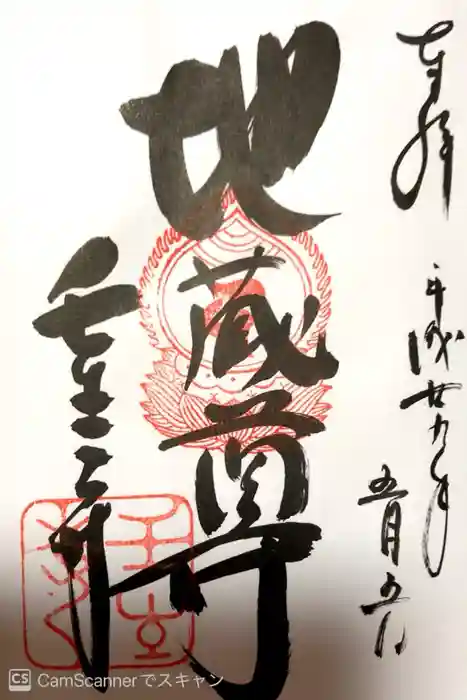 奉拝
平成廿九年
五月五日
地蔵尊
壬生寺
CS CamScannerでスキャン